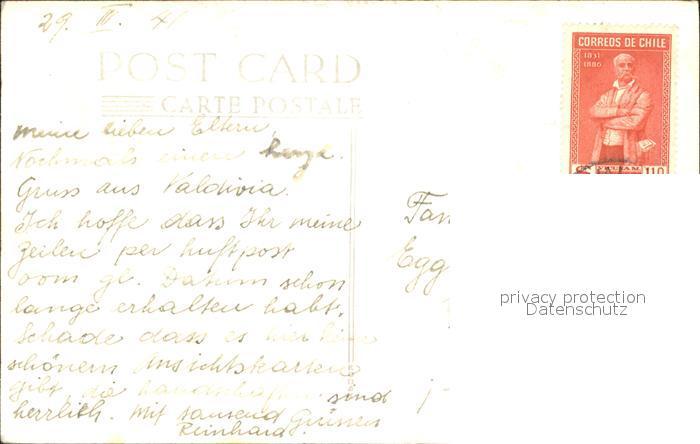 29. III. 41
POST CARD
CARTE POSTALE
CORREOS DE CHILE
1831
1886
110
meine lieben Eltern,
Nochmals einen herzl.
Gruss aus Valdivia.
Ich hoffe dass Ihr meine
Zeilen per Luftpost
vom gl. Datum schon
lange erhalten habt.
Schade dass es hier keine
schönern Ansichtskarten
gibt, die Landschaften sind
herrlich. Mit tausend Grüssen
Reinhard.
Fam
Egg
privacy protection
Datenschutz